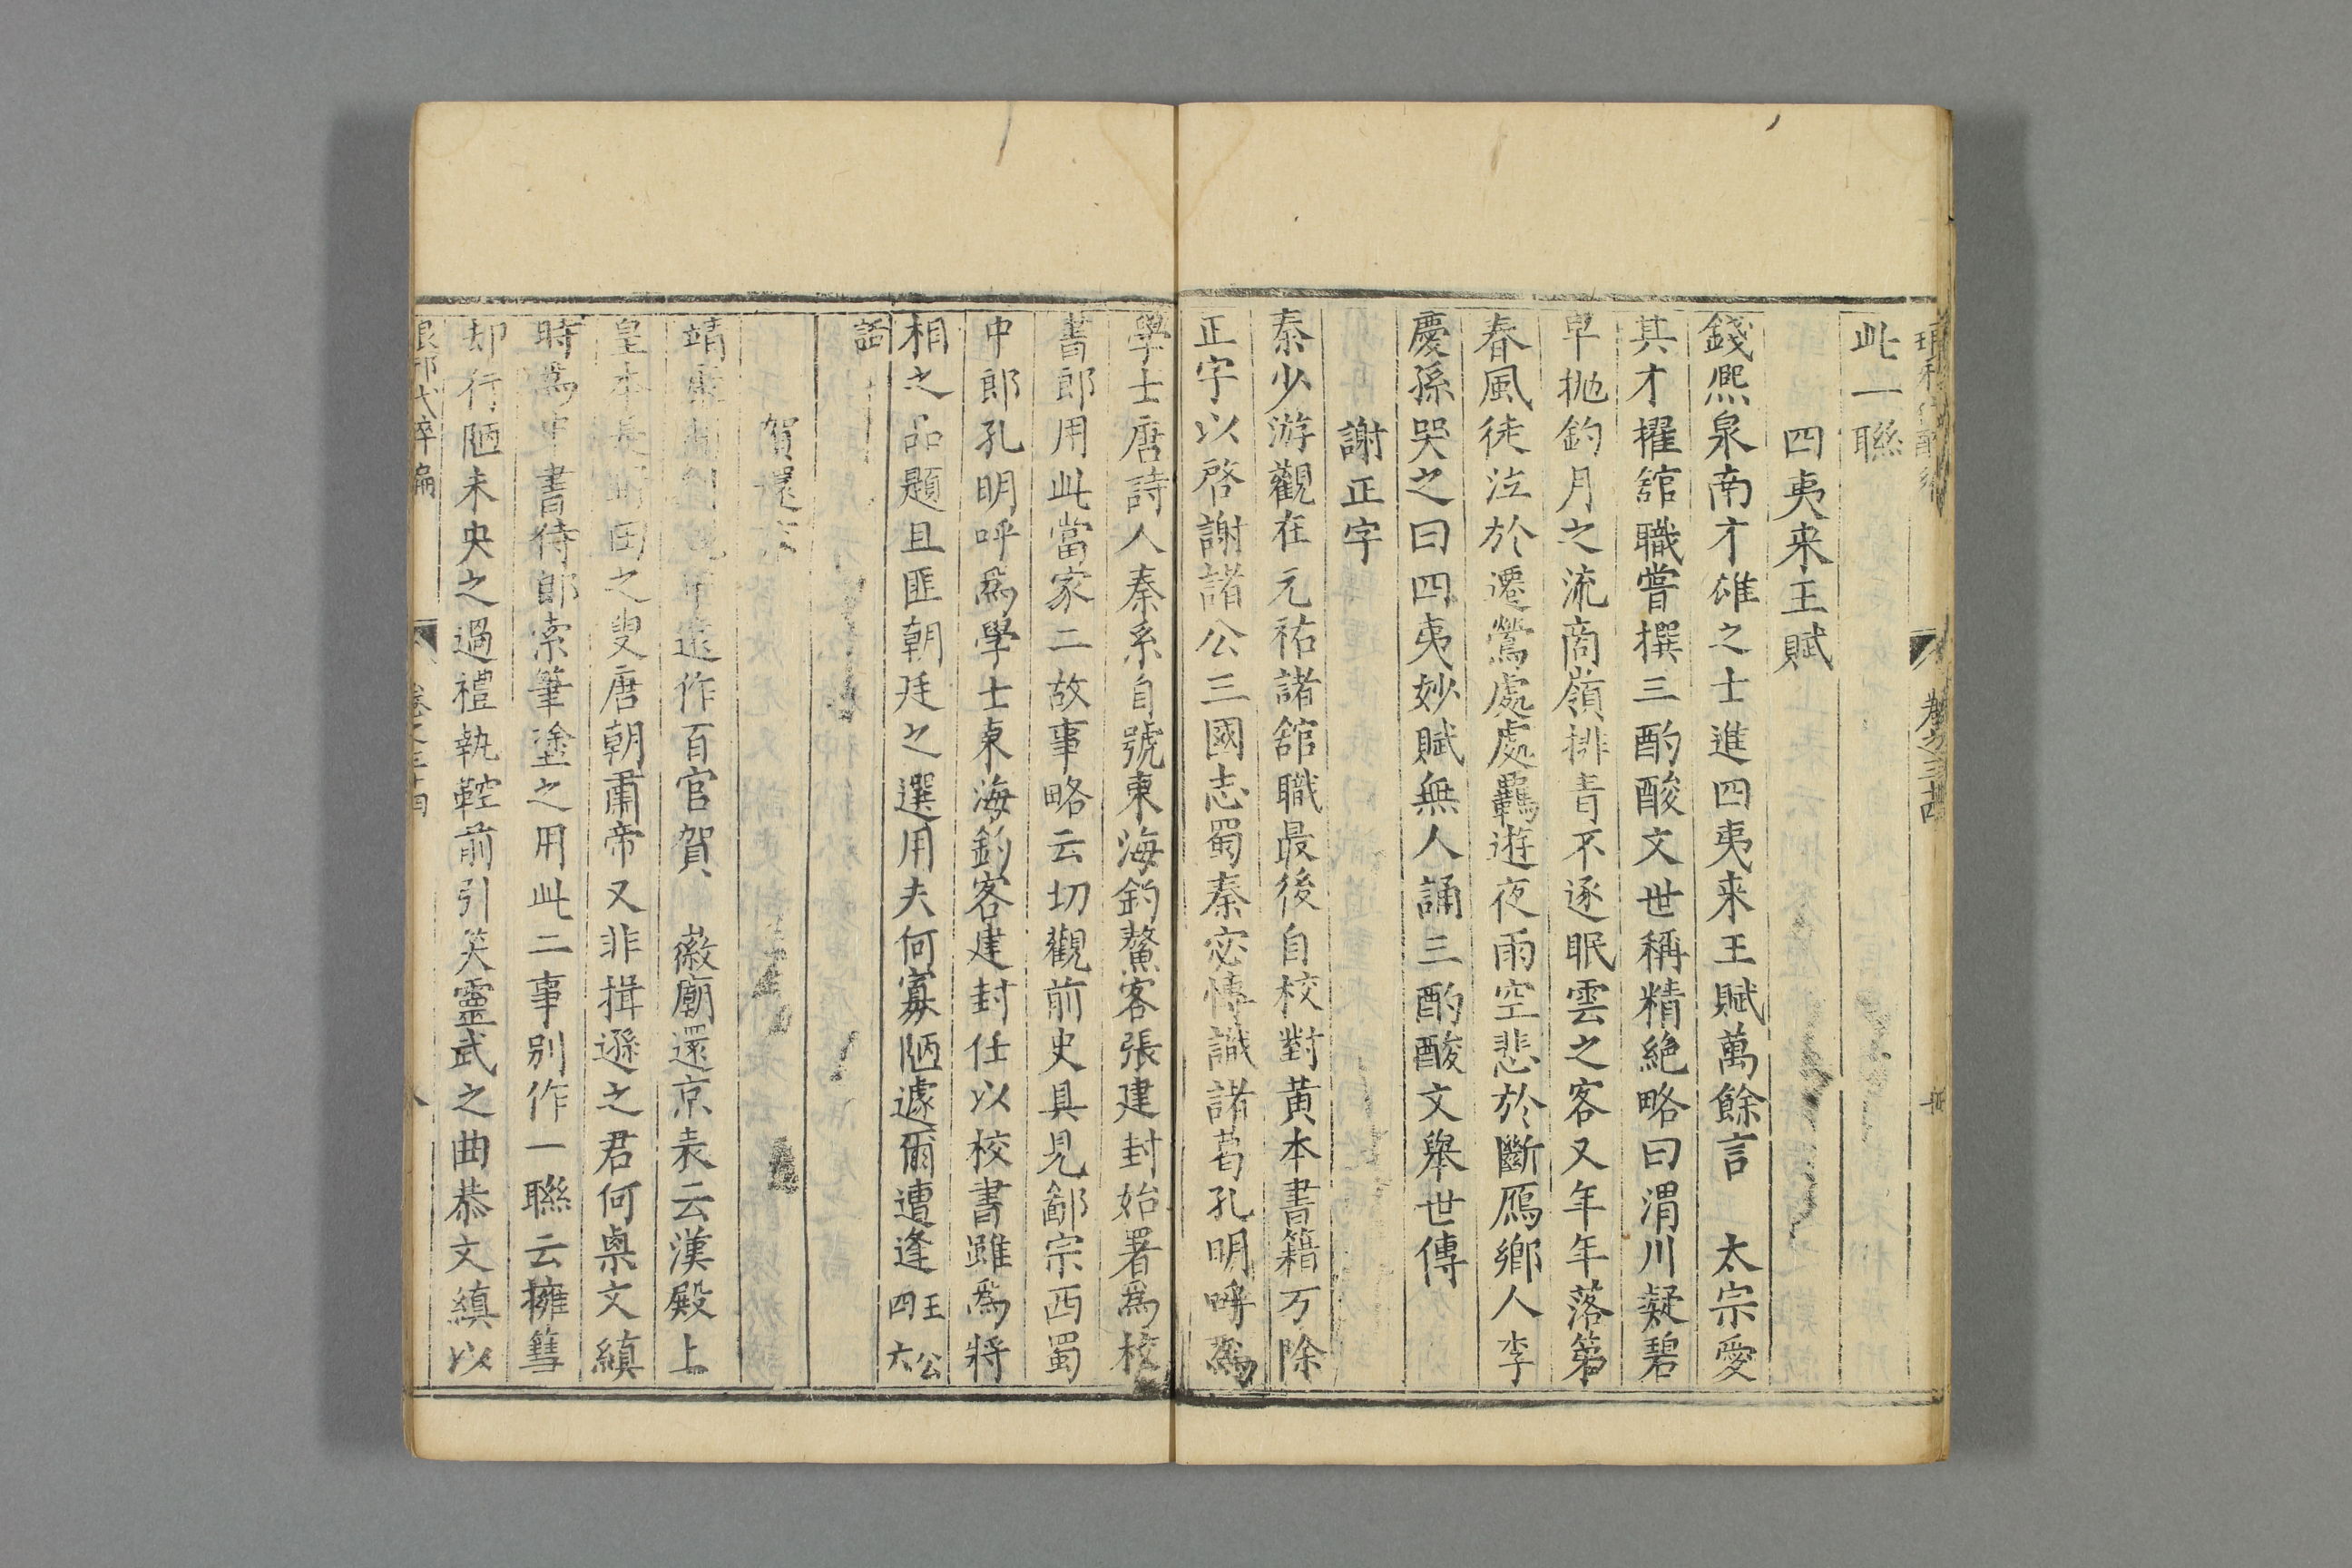 此一聯
四夷来王賦
錢熈泉南才雄之士進四夷来王賦萬餘言　太宗愛
其才擢舘職嘗撰三酌酸文世稱精絶略曰渭川凝碧
早抛釣月之流商嶺排青不逐眠雲之客又年年落第
春風徒泣於遷鶯處處羈遊夜雨空悲於斷鴈鄉人李
慶孫哭之曰四夷妙賦無人誦三酌酸文舉世傳
謝正字
秦少游觀在元祐諸舘職最後自校對黃本書籍万除
正字以啓謝諸公三國志蜀秦宓傳識諸葛孔明呼爲
學士唐詩人秦系自號東海釣鰲客張建封始署爲校
書郎用此當家二故事略云切觀前史具見鄙宗西蜀
中郎孔明呼爲學士東海釣客建封任以校書雖爲將
相之品題且匪朝廷之選用夫何寡陋遽爾遭逢王公四六
話
賀還京
靖康作百官賀　徽廟還京表云漢殿上
皇本是田之叟唐朝肅帝又非揖遜之君何㮚文縝
時爲中書待郎索筆塗之用此二事别作一聯云擁篲
却行陋未央之過禮執鞚前引笑靈武之曲恭文縝以
琅邪代醉編　卷之三十四